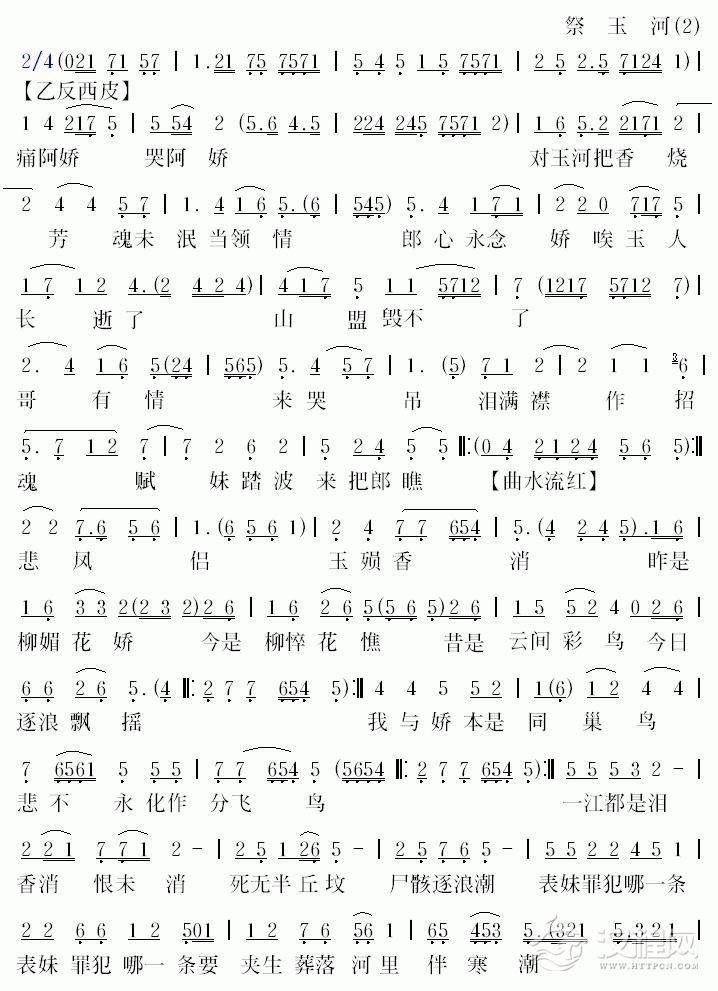 祭 玉 河(2)
2/4(021 71 57 | 1.21 75 7571 | 5 4 5 1 5 7571 | 2 5 2.5 7124 1)|
【乙反西皮】
1 4 217 5 | 5 54 2 (5.6 4.5 | 224 245 7571 2)| 1 6 5.2 2171 2
痛阿娇 哭阿 娇 对玉河把香 烧
2 4 4 5 7 | 1. 4 1 6 5.(6 | 545) 5. 4 1 7 1 | 2 2 0 717 5 |
芳 魂未 泯 当领 情 郎 心 永念 娇 唉 玉 人
1 7 1 2 4.(2 4 2 4)| 4 1 7 5 1 1 5712 | 7 (1217 5712 7)|
长 逝了 山 盟 毁不 了
2. 4 1 6 5(24 | 565) 5. 4 5 7 | 1. (5) 7 1 2 | 2 1 1 3 6 |
哥 有 情 来 哭 吊 泪满 襟 作 招
5. 7 1 2 7 | 7 2 6 2 | 5 2 4 5 5 ‖:(0 4 2124 5 6 5):‖
魂 赋 妹 踏 波 来 把郎 瞧 【曲水流红】
2 2 7.6 5 6 | 1.(6 5 6 1)| 2 4 7 7 654 | 5.(4 2 4 5).1 6 |
悲 凤 侣 玉 殒 香 消 昨是
1 6 3 3 2(2 3 2)2 6 | 1 6 2 6 5(5 6 5)2 6 | 1 5 5 2 4 0 0 2 6 |
柳媚 花 娇 今是 柳悴 花 憔 昔是 云间 彩 鸟 今日
6 6 2 6 5.(4 ‖: 2 7 7 654 5):‖ 4 4 5 5 2 | 1(6) 1 2 4 4 |
逐浪 飘 摇 我 与 娇 本是 同 巢 鸟
7 6561 5 5 5 | 7 7 654 5 (5654 ‖: 2 7 7 654 5):‖ 5 5 5 3 2 - |
悲 不 永 化作 分飞 鸟 一江都是泪
2 2 1 7 7 1 2 - | 2 5 1 26 5 - | 2 5 7 6 5 - | 5 5 2 2 4 5 1 |
香消 恨未 消 死无半 丘 坟 尸骸逐浪潮 表妹罪犯哪一条
2 2 6 6 1 2 501 | 2 2 7 6 56 1 | 65 453 5.321 5.321 |
表妹 罪犯 哪一 条要 夹生 葬落 河 里 伴 寒 潮
汉程网
WWW.HTTPCN.COM